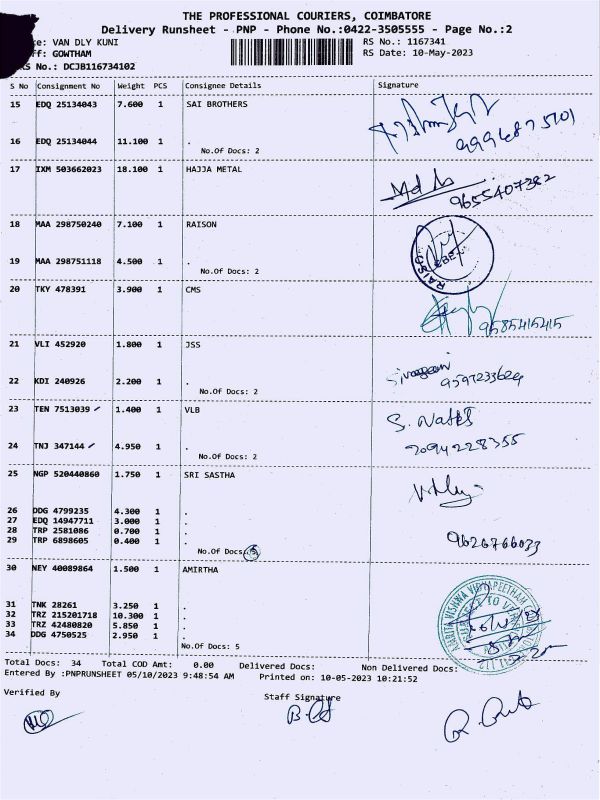 THE PROFESSIONAL COURIERS, COIMBATORE
Delivery Runsheet - PNP - Phone No.:0422-3505555 - Page No.:2
e: VAN DLY KUNI RS No.: 1167341
ff: GOWTHAM RS Date: 10-May-2023
S No.: DCJB116734102
S No Consignment No Weight PCS Consignee Details Signature
15 EDQ 25134043 7.600 1 SAI BROTHERS
16 EDQ 25134044 11.100 1 .
No.Of Docs: 2
17 IXM 503662023 18.100 1 HAJJA METAL
9655407382
18 MAA 298750240 7.100 1 RAISON
19 MAA 298751118 4.500 1 .
No.Of Docs: 2
20 TKY 478391 3.900 1 CMS
9585415415
21 VLI 452920 1.800 1 JSS
22 KDI 240926 2.200 1 .
9597233624
No.Of Docs: 2
23 TEN 7513039 1.400 1 VLB
24 TNJ 347144 4.950 1 .
No.Of Docs: 2
25 NGP 520440860 1.750 1 SRI SASTHA
26 DDG 4799235 4.300 1 .
27 EDQ 14947711 3.000 1 .
28 TRP 2581086 0.700 1 .
29 TRP 6898605 0.400 1 .
No.Of Docs: 5
30 NEY 40089864 1.500 1 AMIRTHA
31 TNK 28261 3.250 1 .
32 TRZ 215201718 10.300 1 .
33 TRZ 42480820 5.850 1 .
34 DDG 4750525 2.950 1 .
No.Of Docs: 5
AMRITA VISHWA VIDYAPEETHAM
Total Docs: 34 Total COD Amt: 0.00 Delivered Docs: Non Delivered Docs:
Entered By :PNPRUNSHEET 05/10/2023 9:48:54 AM Printed on: 10-05-2023 10:21:52
Verified By Staff Signature